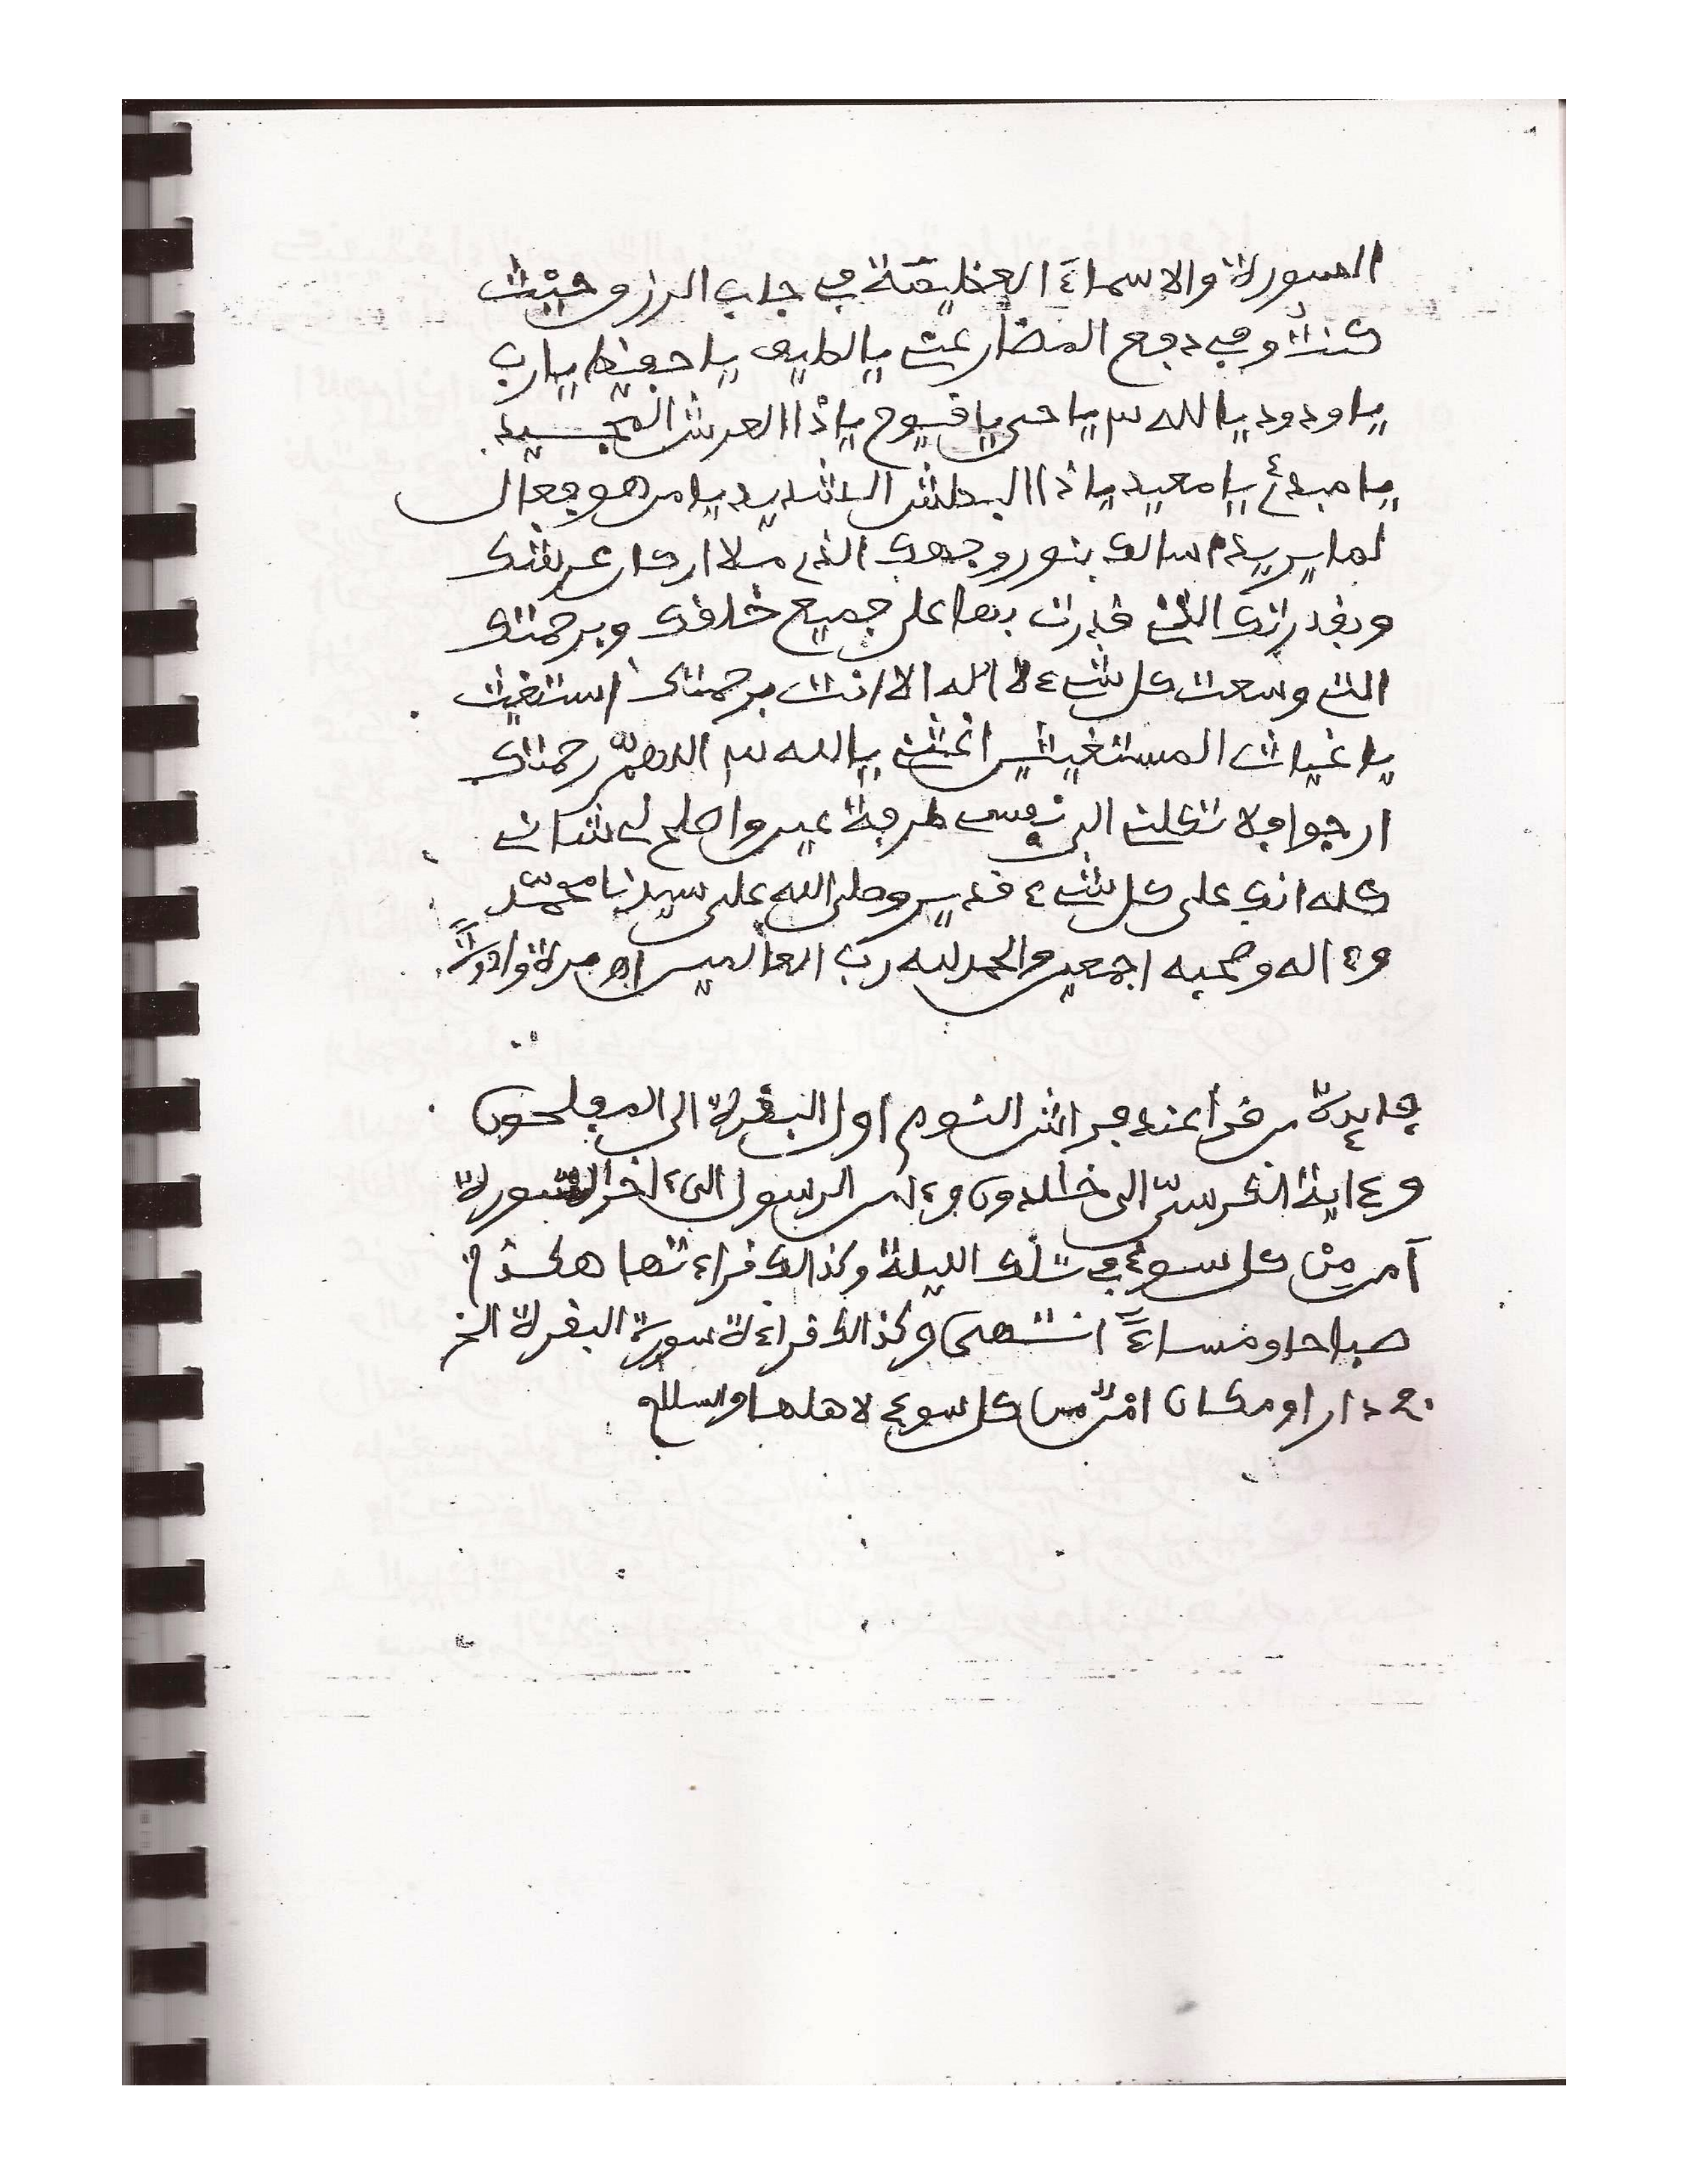 السورة والاسماءَ العظيمة في جلب الرزق حيْث
كنتُ وفي دفع المضار عني يا لطيف يا حفيظ يا رب
يا ودود يا الله ٣ يا حي يا قيوم يا ذا العرش المجيد
يا مبدئ يا معيد يا ذا البطش الشديد يا من هو فعال
لما يريد اسالك بنور وجهك الذي ملا اركان عرشك
وبقدرتك التي قدرت بها على جميع خلقك وبرحمتك
التي وسعت كل شيء لا اله الا انت برحمتك استغيث
يا غياث المستغيثين اغثني يا الله ٣ اللهمّ رحمتك
ارجوا فلا تكلني الى نفسي طرفة عين واصلح لي شاني
كله انك على كل شيء قدير وصلى الله على سيدنا محمّد
وءاله وصحبه اجمعين والحمد لله رب العالمين اه مرة
فايدة من قرا عند فراش النوم اول البقرة الى المفلحون
وءاية الكرسيّ الى خالدون وءامن الرسول الىءاخر السورة
آمن مِنْ كل سوء في تلك الليلة وكذالك قراءتها هكذا
صباحا ومساءً انتهى وكذالك قراءة سورة البقرة الخ
في دار او مكان امْن من كل سوء لاهلها والسلام